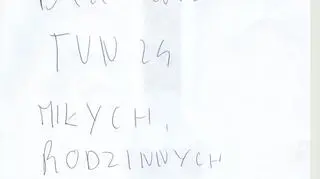 TVN 24
MIŁYCH,
RODZINNYCH